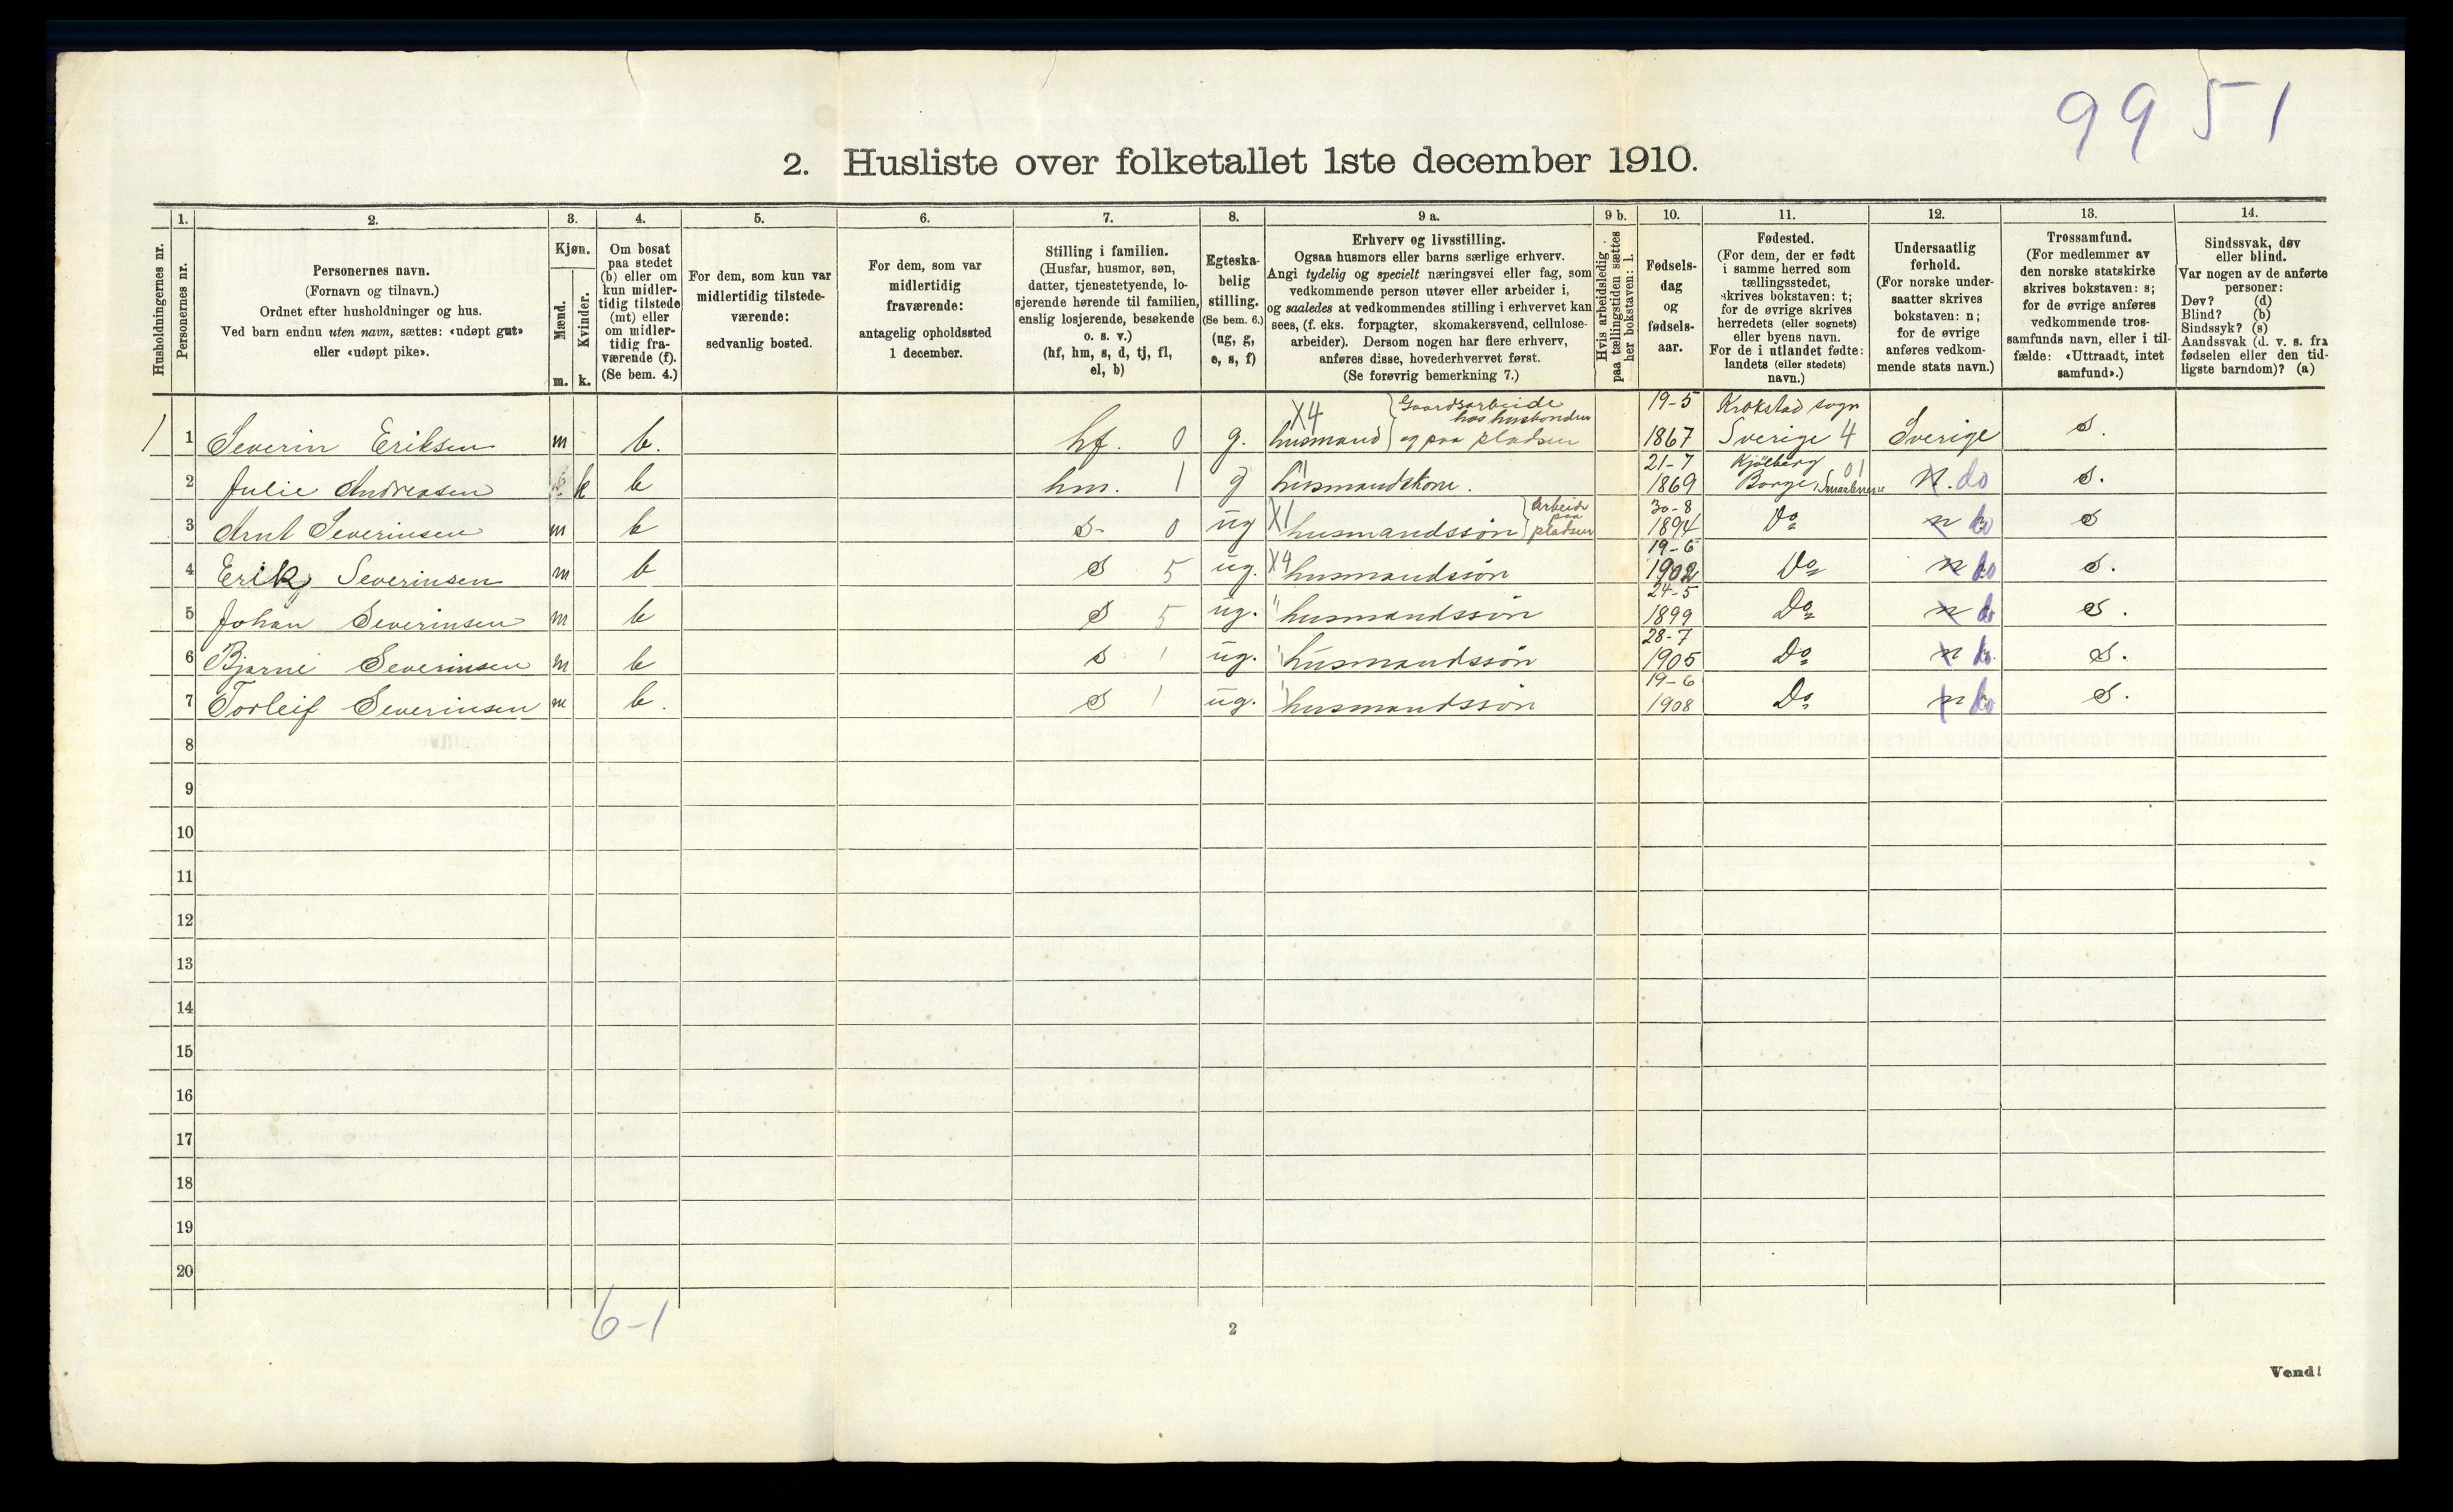 9951
2. Husliste over folketallet 1ste december 1910.
Husholdningernes nr.
1.
Personernes nr.
2.
Personernes navn.
(Fornavn og tilnavn.)
Ordnet efter husholdninger og hus.
Ved barn endnu uten navn, sættes: «udøpt gut»
eller «udøpt pike».
3.
Kjøn.
Mænd.
Kvinder.
m. k.
4.
Om bosat
paa stedet
(b) eller om
kun midler-
tidig tilstede
(mt) eller
om midler-
tidig fra-
værende (f).
(Se bem. 4.)
5.
For dem, som kun var
midlertidig tilstede-
værende:
sedvanlig bosted.
6.
For dem, som var
midlertidig
fraværende:
antagelig opholdssted
1 december.
7.
Stilling i familien.
(Husfar, husmor, søn,
datter, tjenestetyende, lo-
sjerende hørende til familien,
enslig losjerende, besøkende
o. s. v.)
(hf, hm, s, d, tj, fl,
el, b)
8.
Egteska-
belig
stilling.
(Se bem. 6.)
(ug, g,
e, s, f)
9 a.
Erhverv og livsstilling.
Ogsaa husmors eller barns særlige erhverv.
Angi tydelig og specielt næringsvei eller fag, som
vedkommende person utøver eller arbeider i,
og saaledes at vedkommendes stilling i erhvervet kan
sees, (f. eks. forpagter, skomakersvend, cellulose-
arbeider). Dersom nogen har flere erhverv,
anføres disse, hovederhvervet først.
(Se forøvrig bemerkning 7.)
9 b.
Hvis arbeidsledig
paa tællingstiden sættes
her bokstaven: l.
10.
Fødsels-
dag
og
fødsels-
aar.
11.
Fødested.
(For dem, der er født
i samme herred som
tællingsstedet,
skrives bokstaven: t;
for de øvrige skrives
herredets (eller sognets)
eller byens navn.
For de i utlandet fødte:
landets (eller stedets)
navn.)
12.
Undersaatlig
forhold.
(For norske under-
saatter skrives
bokstaven: n;
for de øvrige
anføres vedkom-
mende stats navn.)
13.
Trossamfund.
(For medlemmer av
den norske statskirke
skrives bokstaven: s;
for de øvrige anføres
vedkommende tros-
samfunds navn, eller i til-
fælde: «Uttraadt, intet
samfund».)
14.
Sindssvak, døv
eller blind.
Var nogen av de anførte
personer:
Døv? (d)
Blind? (b)
Sindssyk? (s)
Aandssvak (d. v. s. fra
fødselen eller den tid-
ligste barndom)? (a)
X4 Gaardsarbeide hos husbonden 19-5 Krokstad sogn
1 1 Severin Eriksen m b. hf. 0 g. husmand og paa pladsen 1867 Sverige 4 Sverige s.
21-7 Kjölberg 01
2 Julie Andreasen k b hm. 1 g husmandskone. 1869 Borge, Smaalenene n. do s.
30-8
3 Arnt Severinsen m b s- 0 ug X1 husmandssøn arbeide paa pladsen 1894 Do n do s
19-6
4 Erik Severinsen m b s 5 ug. X4 husmandssøn 1902 Do n do s.
24-5
5 Johan Severinsen m b s 5 ug. " husmandssøn 1899 Do n do s.
28-7
6 Bjarne Severinsen m b s 1 ug. husmandssøn 1905 Do n do. s.
19-6
7 Torleif Severinsen m b. s 1 ug. husmandssøn 1908 Do n do s.
8
9
10
11
12
13
14
15
16
17
18
19
20
6-1
2
Vend!